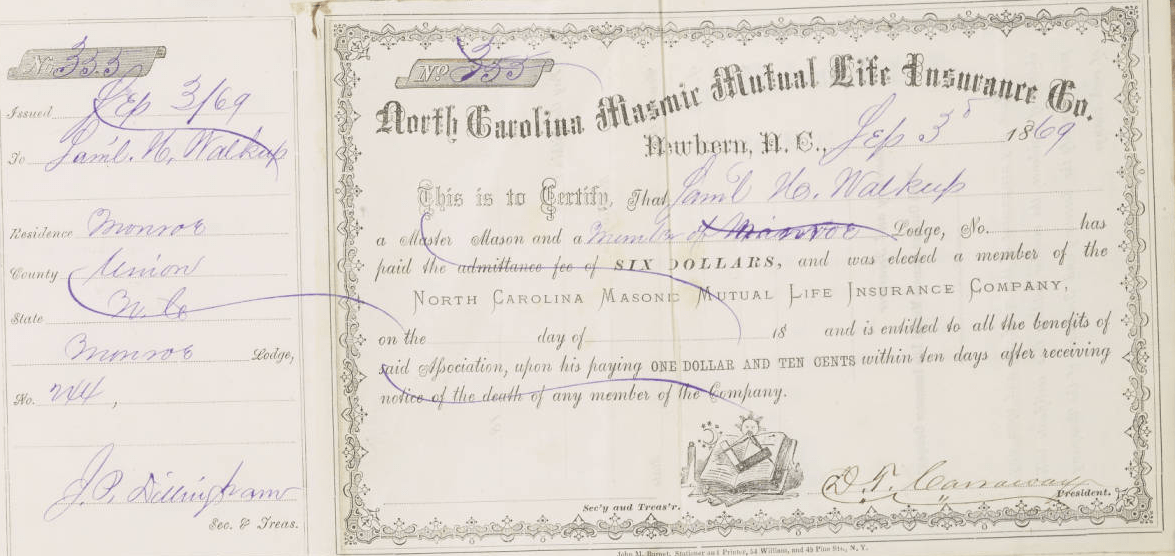 No. 333
Issued Sep 3/69
To Saml. H. Walkup
Residence Monroe
County Union
State N. Co
Monroe Lodge,
No. 244,
J. P. Dillingham
Sec. & Treas.
No. 333
North Carolina Masonic Mutual Life Insurance Co.
Newbern, N. C., Sep 3 1869
This is to Certify, That Saml H. Walkup
a Master Mason and a Member of Monroe Lodge, No. has
paid the admittance fee of SIX DOLLARS, and was elected a member of the
NORTH CAROLINA MASONIC MUTUAL LIFE INSURANCE COMPANY,
on the day of 18 and is entitled to all the benefits of
said Association, upon his paying ONE DOLLAR AND TEN CENTS within ten days after receiving
notice of the death of any member of the Company.
D. T. Carraway
President.
Sec'y and Treas'r.
John M. Burnet, Stationer and Printer, 51 William, and 48 Pine Sts., N. Y.